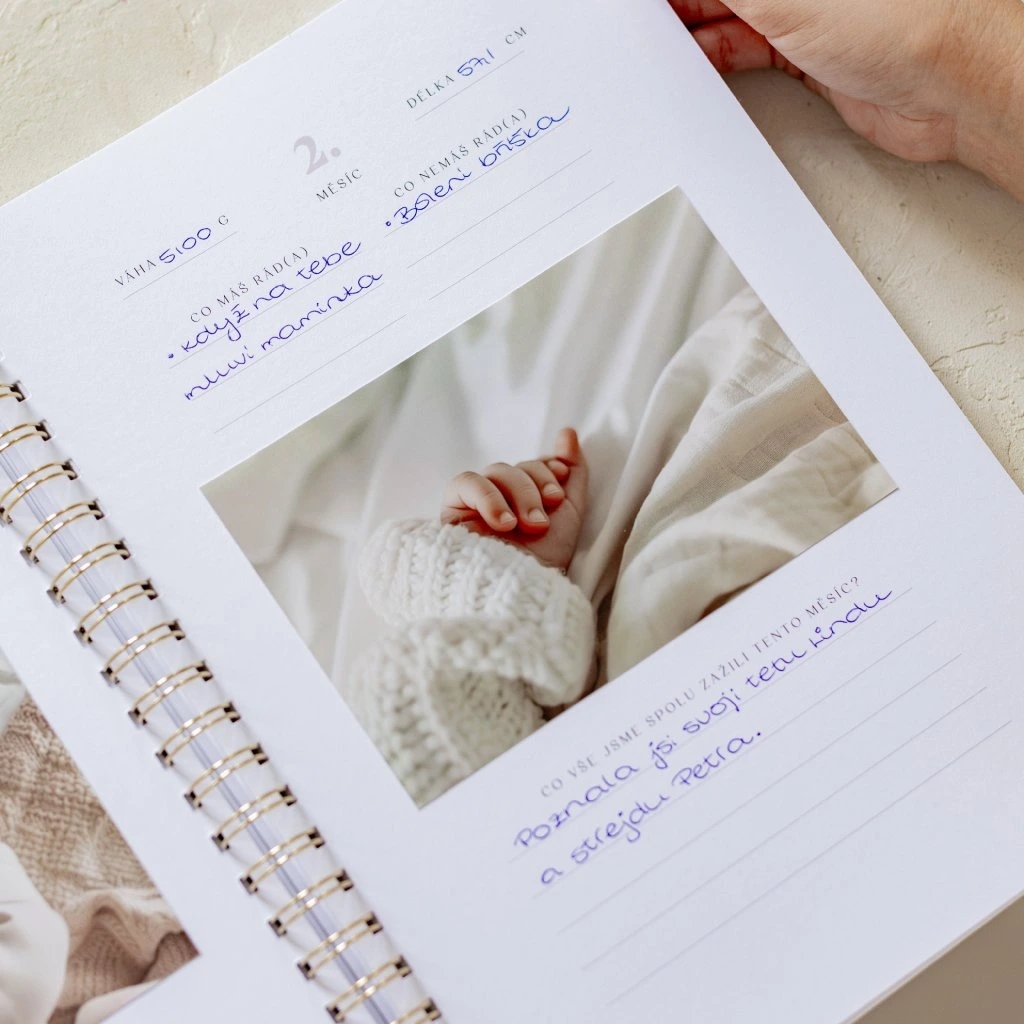 2.
MĚSÍC
VÁHA 5100 G
DÉLKA 57,1 CM
CO MÁŠ RÁD(A)
• když na tebe
mluví maminka
CO NEMÁŠ RÁD(A)
• Bolení bříška
CO VŠE JSME SPOLU ZAŽILI TENTO MĚSÍC?
Poznala jsi svoji tetu Lindu
a strejdu Petra.